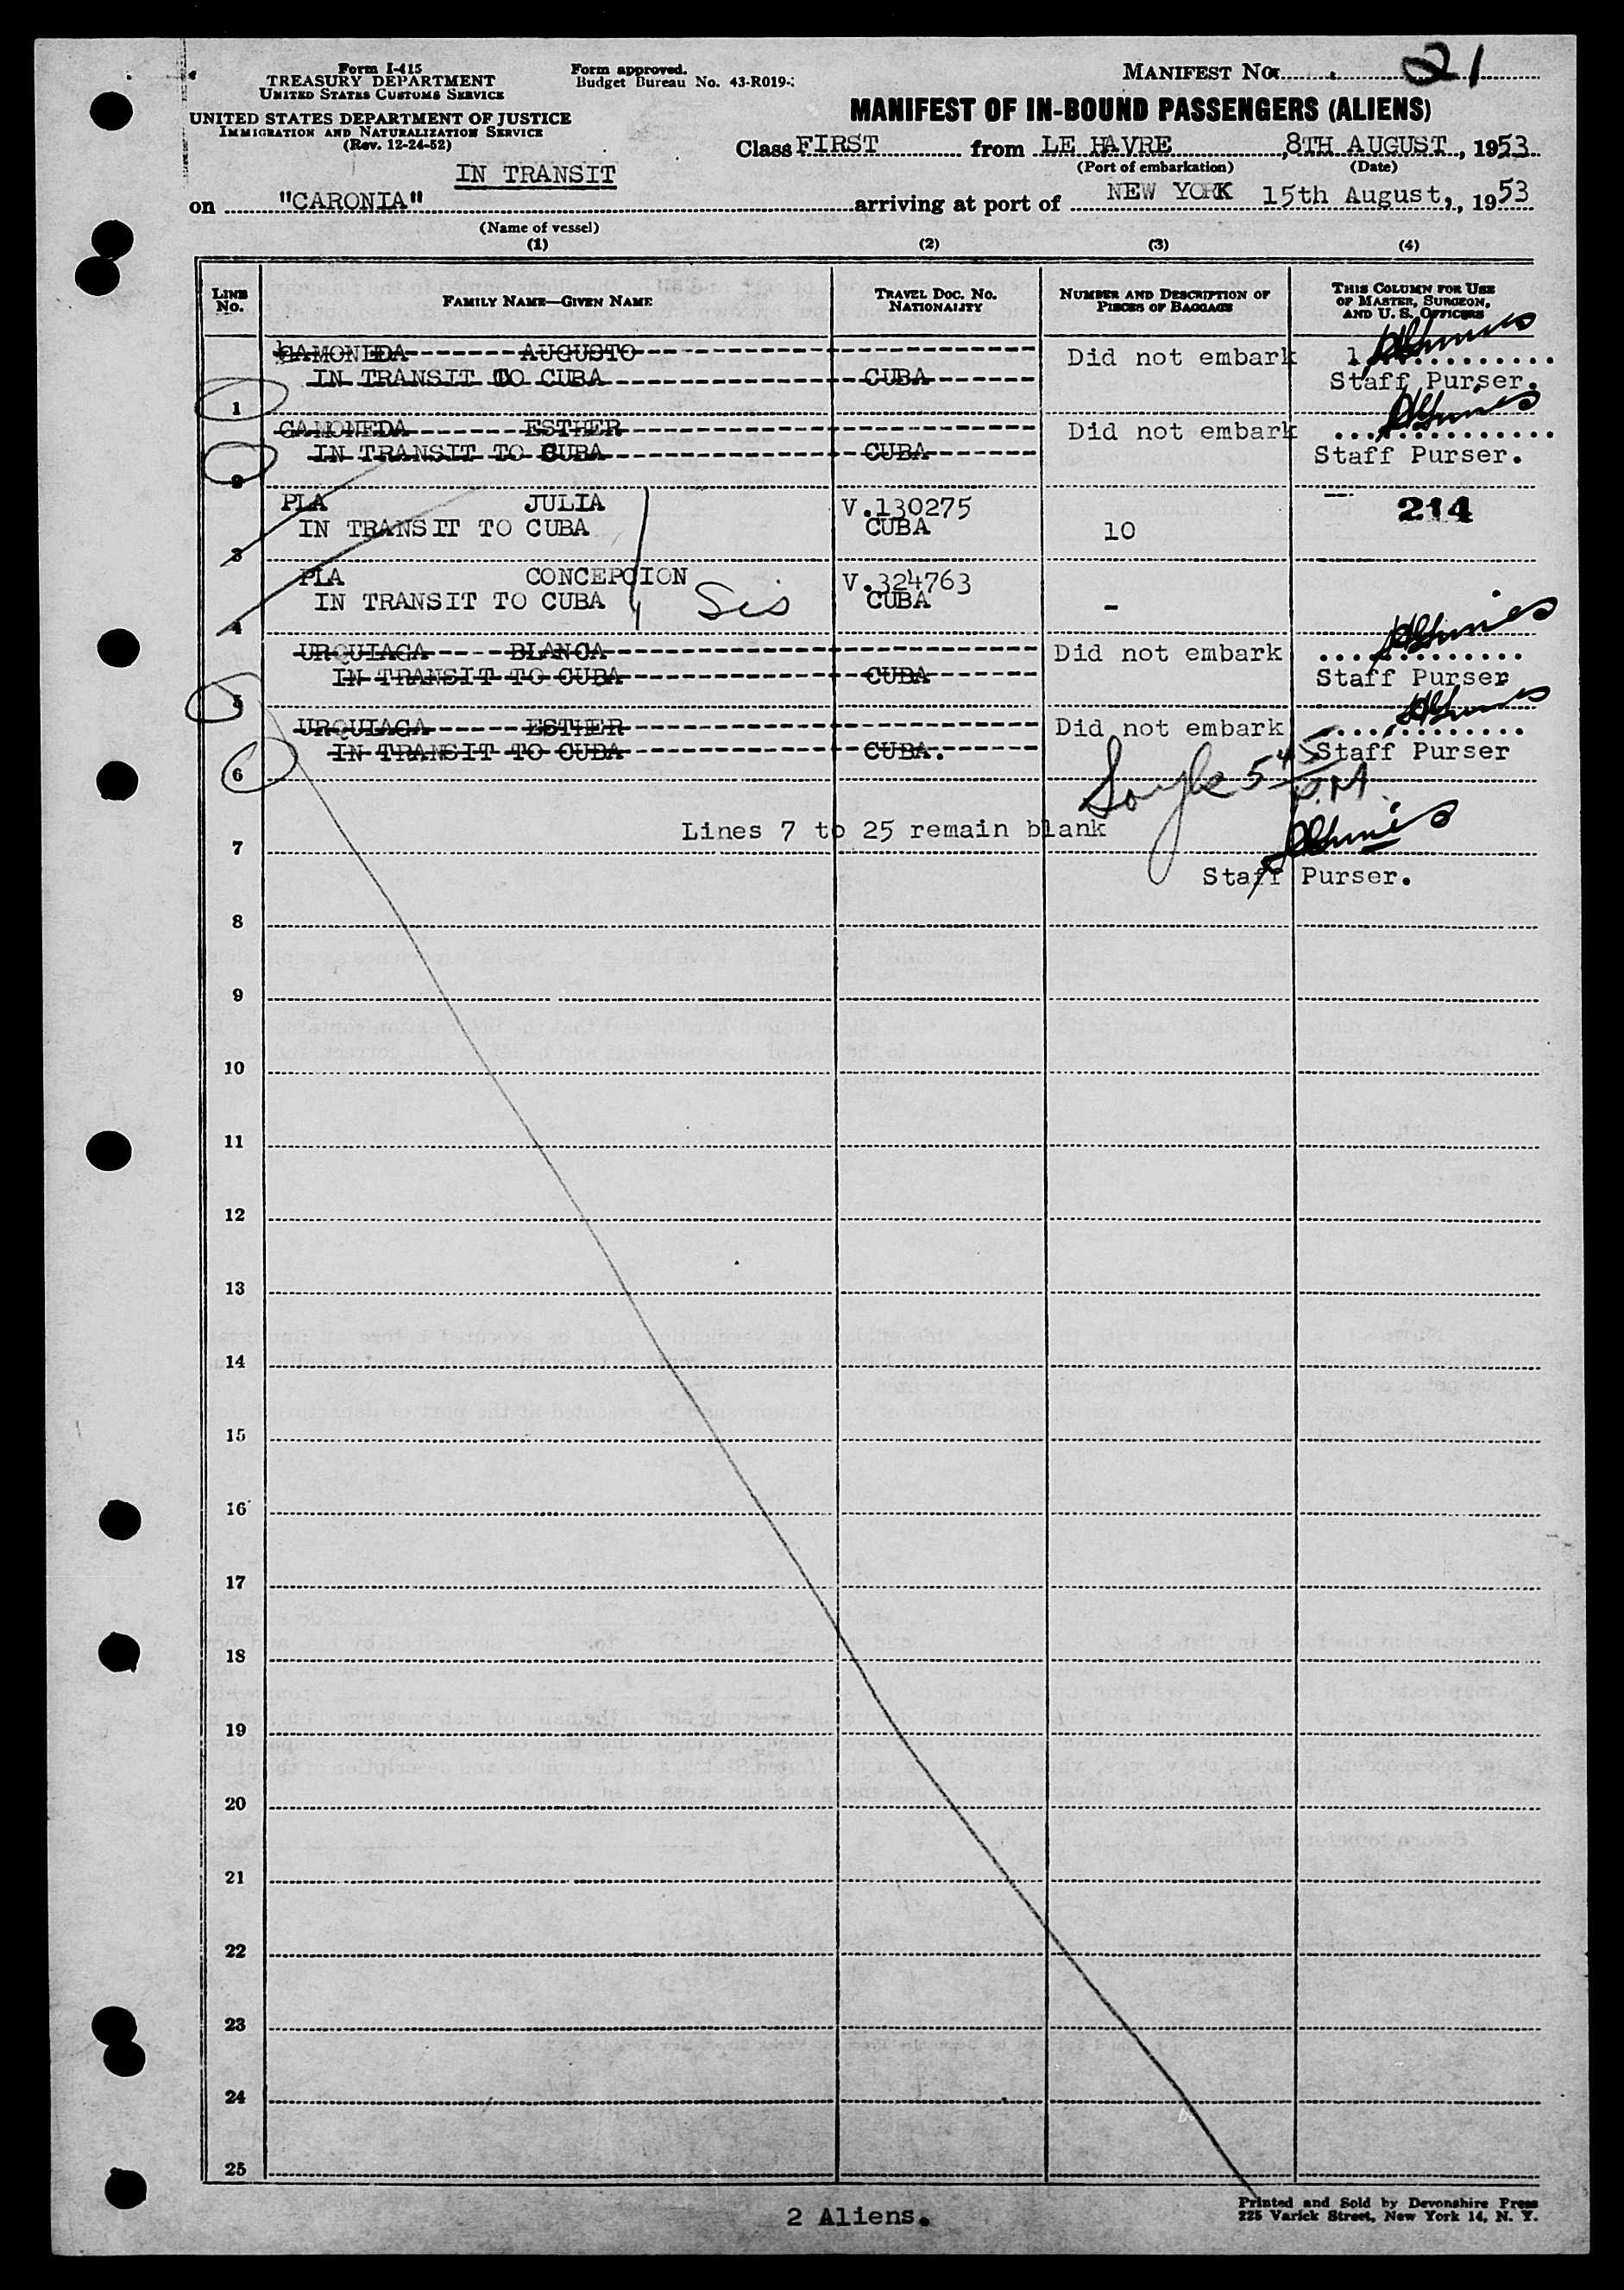 Form I-415
TREASURY DEPARTMENT
UNITED STATES CUSTOMS SERVICE
UNITED STATES DEPARTMENT OF JUSTICE
IMMIGRATION AND NATURALIZATION SERVICE
(Rev. 12-24-52)
Form approved.
Budget Bureau No. 43-R019-
MANIFEST No. 21
MANIFEST OF IN-BOUND PASSENGERS (ALIENS)
Class FIRST from LE HAVRE, 8TH AUGUST, 1953
(Port of embarkation) (Date)
IN TRANSIT
on "CARONIA" arriving at port of NEW YORK 15th August, 1953
(Name of vessel)
(1) (2) (3) (4)
LINE No. FAMILY NAME—GIVEN NAME TRAVEL DOC. NO. NATIONALITY NUMBER AND DESCRIPTION OF PIECES OF BAGGAGE THIS COLUMN FOR USE OF MASTER, SURGEON, AND U. S. OFFICERS
GAMONEDA AUGUSTO Did not embark 1
IN TRANSIT TO CUBA CUBA Staff Purser.
1
GAMONEDA ESTHER Did not embark
IN TRANSIT TO CUBA CUBA Staff Purser.
2
PLA JULIA V.130275 214
IN TRANSIT TO CUBA CUBA 10
3
PLA CONCEPCION V.324763
IN TRANSIT TO CUBA Sis CUBA -
4
URQUIAGA BLANCA Did not embark
IN TRANSIT TO CUBA CUBA Staff Purser
5
URQUIAGA ESTHER Did not embark
IN TRANSIT TO CUBA CUBA. Staff Purser
6
5 45 P.M.
Lines 7 to 25 remain blank
7
Staff Purser.
8
9
10
11
12
13
14
15
16
17
18
19
20
21
22
23
24
25
2 Aliens.
Printed and Sold by Devonshire Press
225 Varick Street, New York 14, N. Y.